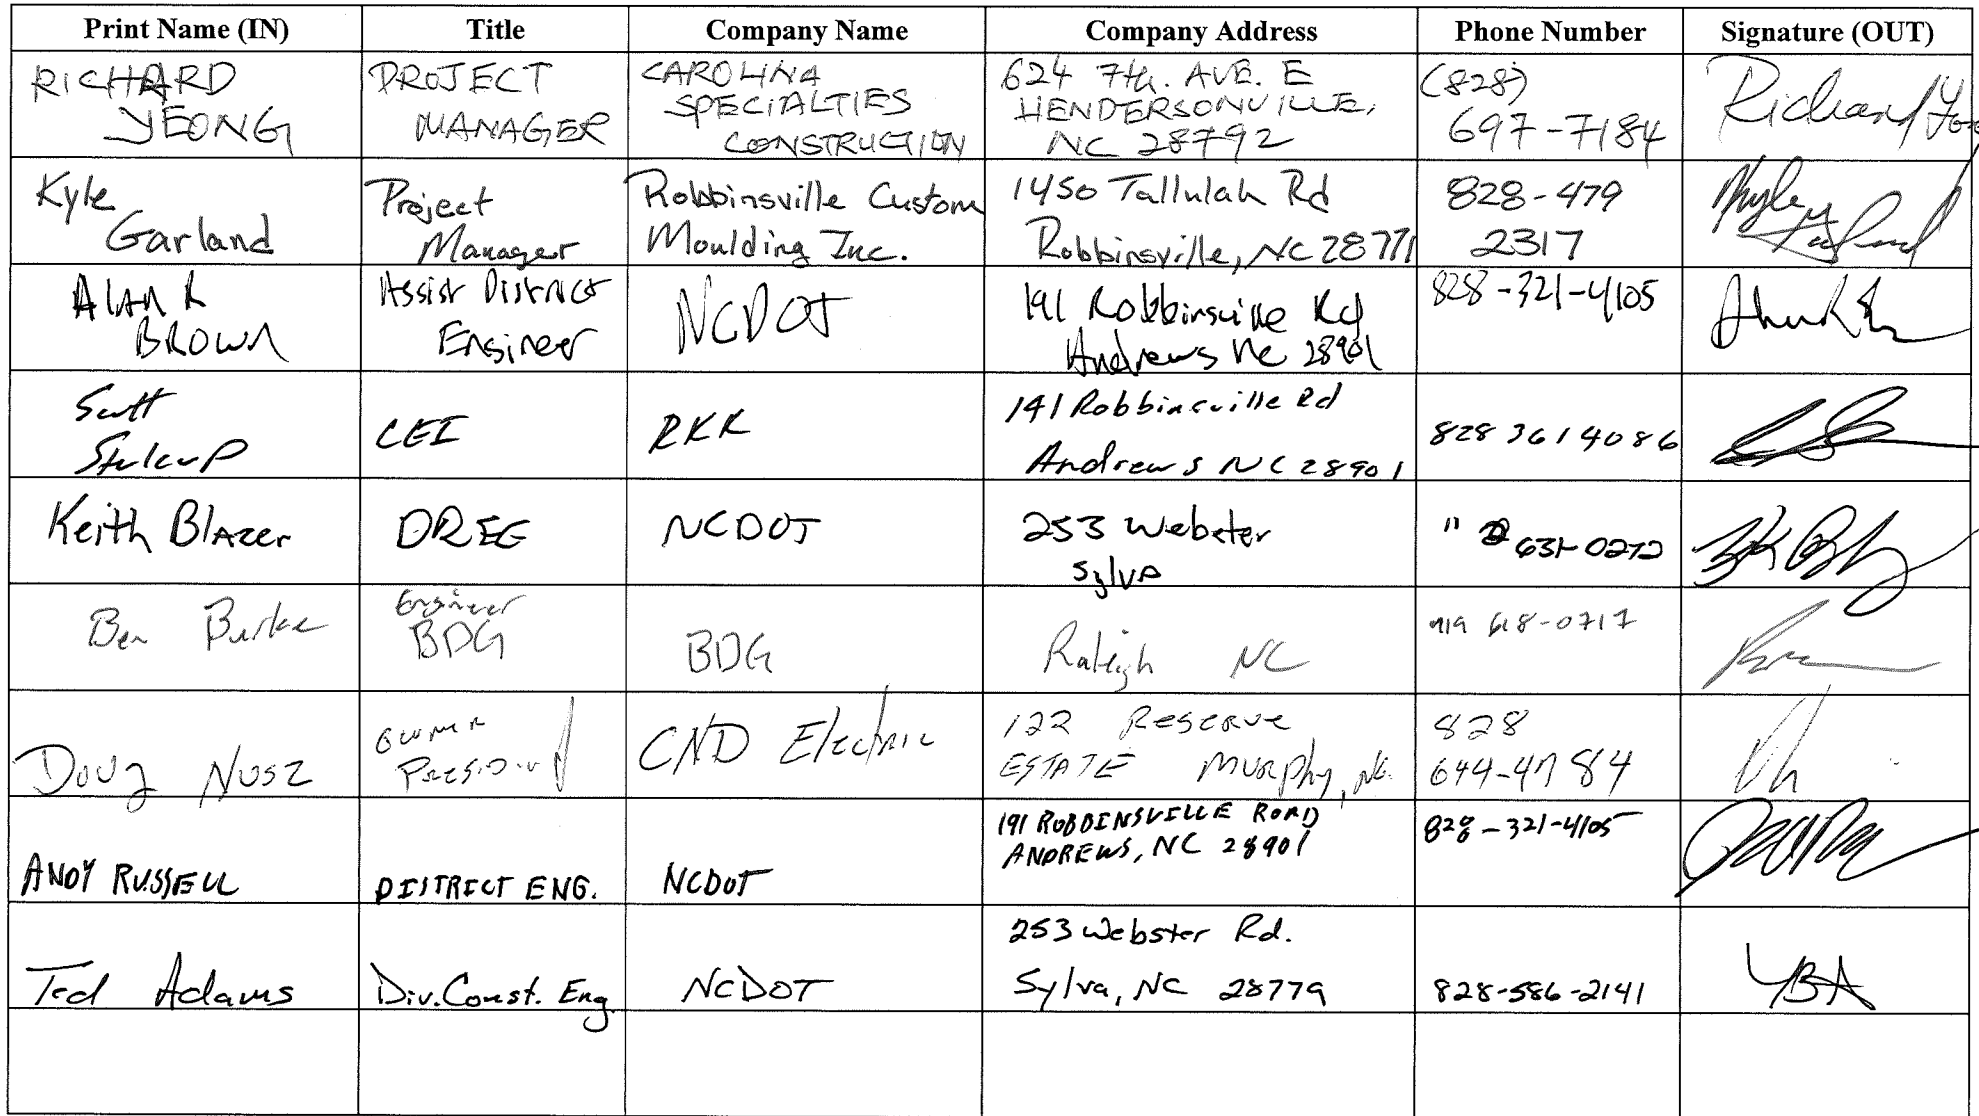 Print Name (IN) Title Company Name Company Address Phone Number Signature (OUT)
RICHARD
YEONG
PROJECT
MANAGER
CAROLINA
SPECIALTIES
CONSTRUCTION
624 7th. AVE. E
HENDERSONVILLE,
NC 28792
(828)
697-7184
Richard
Kyle
Garland
Project
Manager
Robbinsville Custom
Moulding Inc.
1450 Tallulah Rd
Robbinsville, NC 28771
828-479
2317
Kyle
Garland
Alan R
BROWN
Assist District
Engineer
NCDOT
191 Robbinsville Rd
Andrews NC 28901
828-321-4105
Scott
CEI
RKK
191 Robbinsville Rd
Andrews NC 28901
828 361 4086
Keith Blazer
DREG
NCDOT
253 Webster
Sylva
" 631-0272
Ben Burke
Engineer
BDG
BDG
Raleigh NC
919 618-0717
Doug Nusz
owner
President
CND Electric
122 Reserve
ESTATE Murphy, NC.
828
644-4784
ANDY RUSSELL
DISTRICT ENG.
NCDOT
191 ROBBINSVILLE ROAD
ANDREWS, NC 28901
828-321-4105
Ted Adams
Div. Const. Eng
NCDOT
253 Webster Rd.
Sylva, NC 28779
828-586-2141